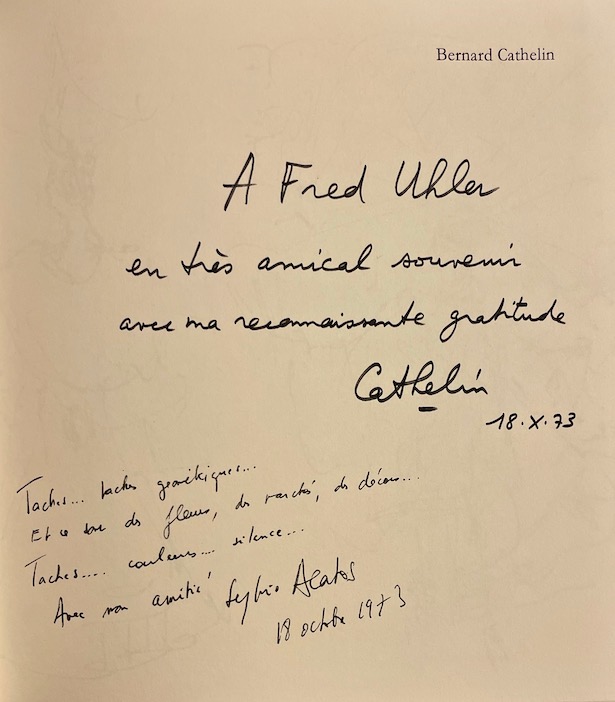 Bernard Cathelin
A Fred Uhler
en très amical souvenir
avec ma reconnaissante gratitude
Cathelin
18.X.73
Taches... taches géométriques...
Et ce sont des fleurs, des marchés, des décors...
Taches.... couleurs... silence...
Avec mon amitié Sylvio Acatos
18 octobre 1973